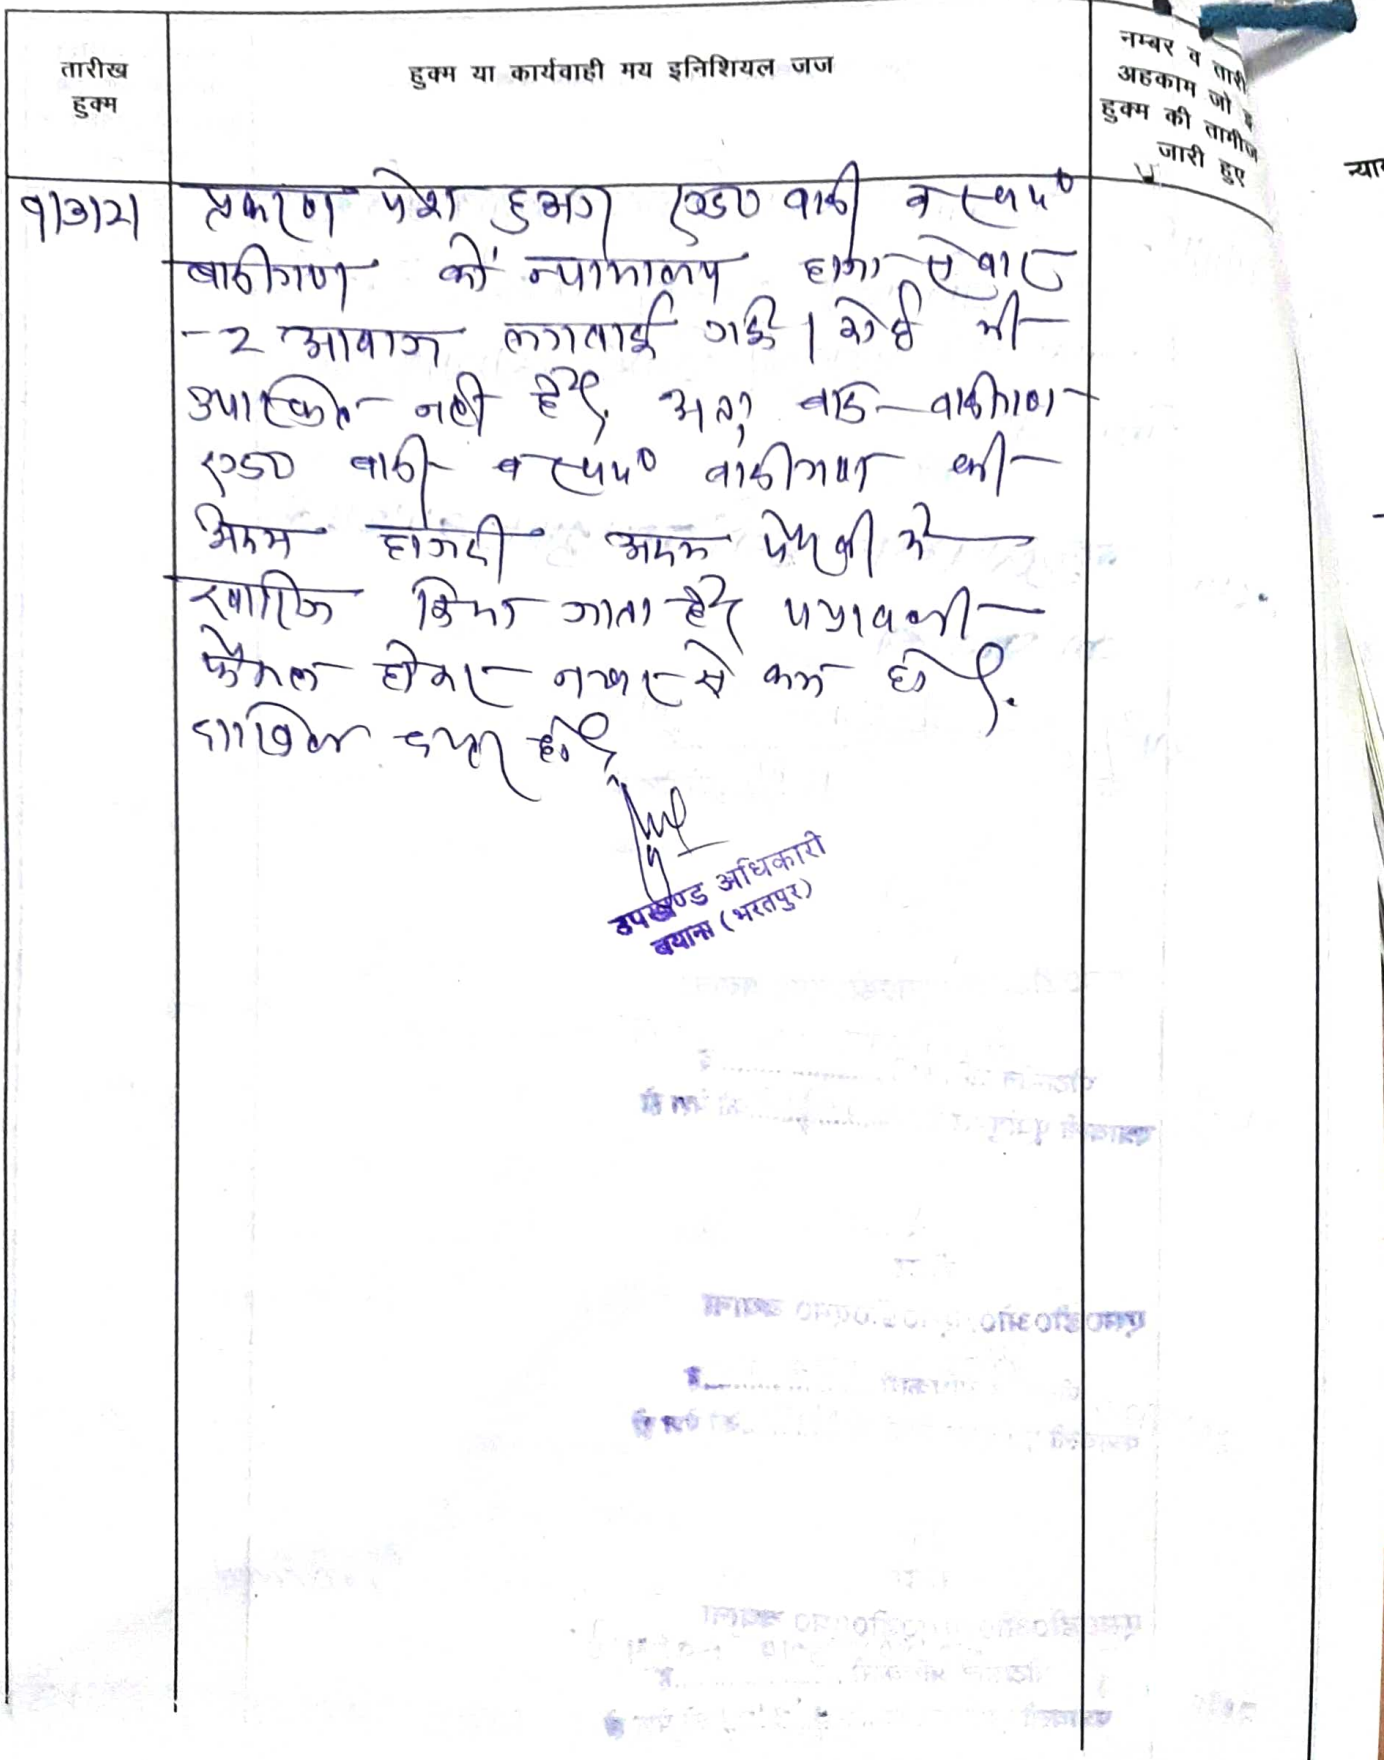 तारीख
हुक्म
हुक्म या कार्यवाही मय इनिशियल जज
नम्बर व तारी
अहकाम जो इ
हुक्म की तामील
जारी हुए
न्या
प्रकरण पेश हुआ एड० वादी व स्वयं
वादीगण को न्यायालय द्वारा
-2 आवाज लगवाई गई। कोई भी
उपस्थित नहीं है। अतः वाद वादीगण
एड० वादी व स्वयं वादीगण की
अदम हाजरी अदम पैरवी में
खारिज किया जाता है। पत्रावली
फैसल होकर नम्बर से कम हो।
दाखिल दफ्तर हो।
उपखण्ड अधिकारी
बयाना (भरतपुर)